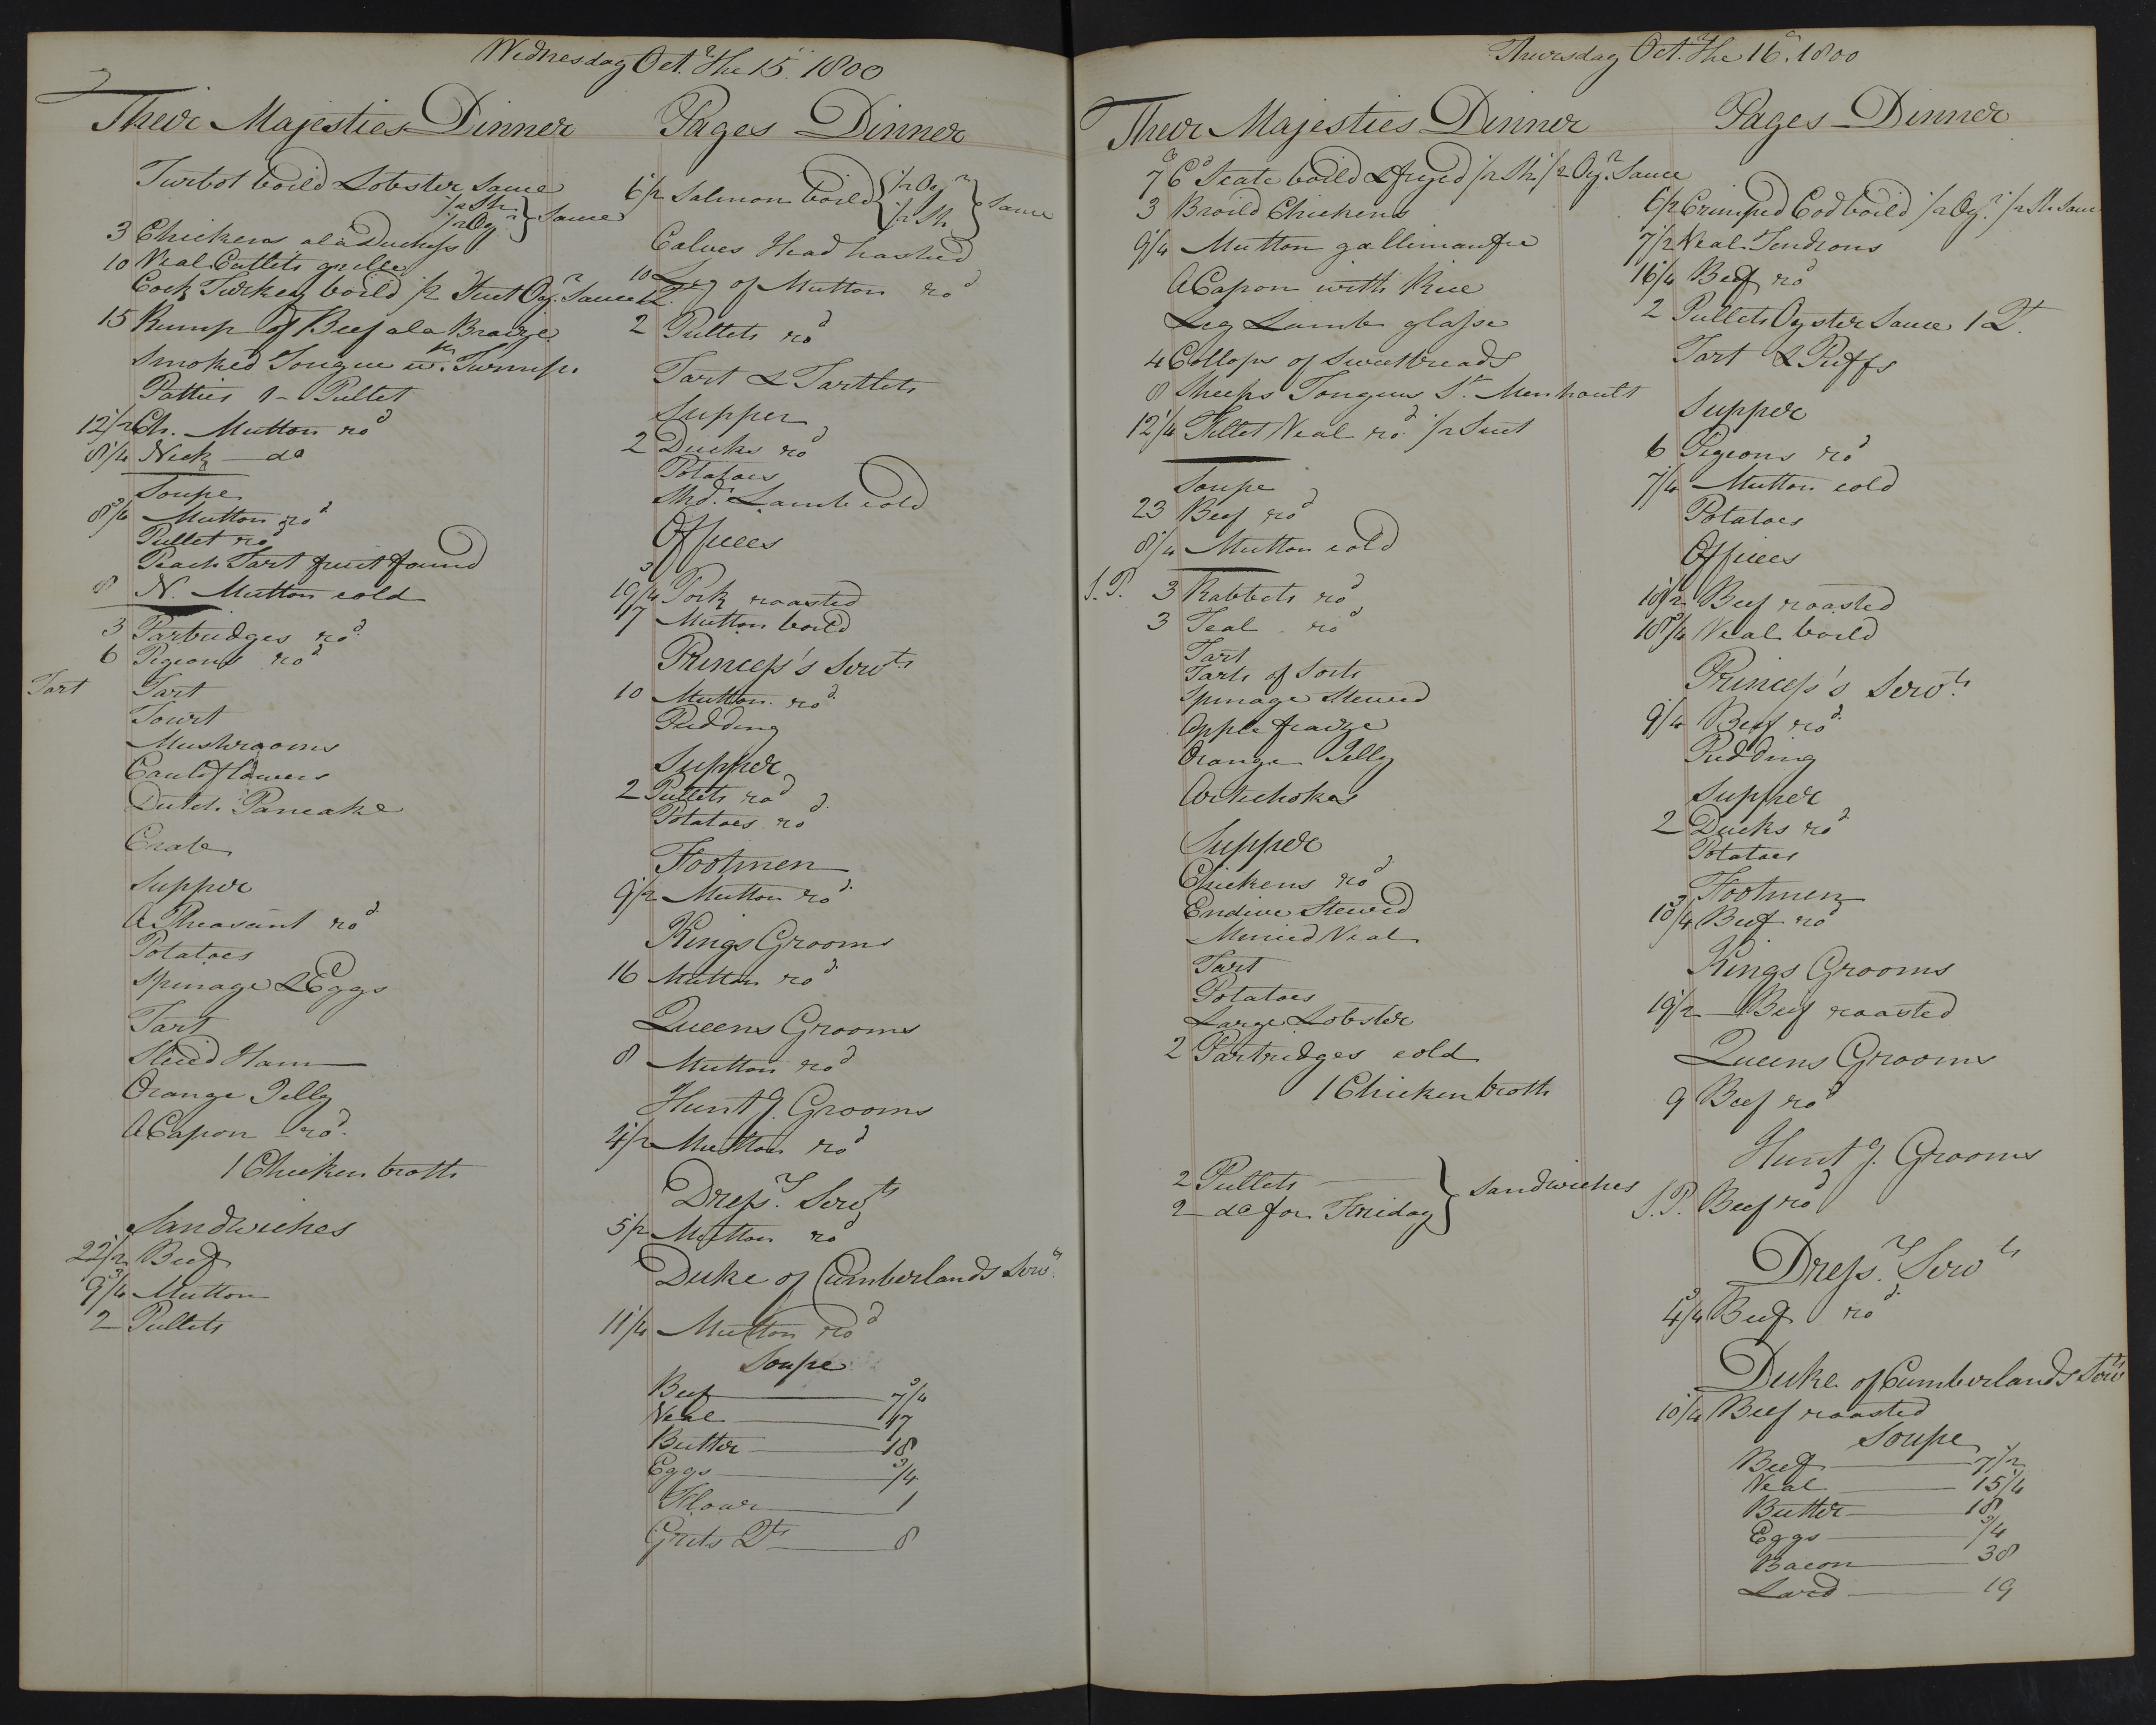 Wednesday Octr. The 15. 1800
Their Majesties Dinner
Turbot boild Lobster Sauce
1/2 Sh.
1/2 Oyr. } Sauce
3 Chickens ala Duchess
10 Veal Cutlets grille
Cock Turkey boild 1/2 Suet Oyr. Sauce
15 Rump of Beef ala Braize
Smoked Tongue wth. Turnips
Patties 1 - Pullet
12 1/2 Ch. Mutton rod
8 1/4 Neck - do
Soupe
8 3/4 Mutton rod
Pullet rod
Peach Tart fruit found
8 N. Mutton cold
3 Partridges rod.
6 Pigeons rod
Tart Tart
Tourt
Mushrooms
Cauliflowers
Dutch Pancake
Crab
Supper
A Pheasant rod
Potatoes
Spinage & Eggs
Tart
Sliced Ham
Orange Jelly
A Capon rod.
1 Chicken broth
Sandwiches
22 1/2 Beef
9 3/4 Mutton
2 Pullets
Pages Dinner
6 1/2 Salmon boild { 1/2 Oyr
1/2 Sh } Sauce
Calves Head hashed
10 Leg of Mutton rod
2 Pullets rod
Tart & Tartlets
Supper
2 Ducks rod
Potatoes
Shdr. Lamb cold
Offices
19 3/4 Pork roasted
17 Mutton boild
Princess's Servts.
10 Mutton rod.
Pudding
Supper
2 Pullets rod
Potatoes rod.
Footmen
9 1/2 Mutton rod.
Kings Grooms
16 Mutton rod
Queens Grooms
8 Mutton rod
Hunt g. Grooms
4 1/2 Mutton rod
Dressr. Servts
5 1/2 Mutton rod
Duke of Cumberlands Servts.
11 1/4 Mutton rod
Soupe
Beef 7 3/4
Veal 47
Butter 18
Eggs 3/4
Flour 1
Grits Qts 8
Thursday Octr. The 16. 1800
Their Majesties Dinner
7 Cd Scate boild & fryed 1/2 Sh. 1/2 Oyr. Sauce
3 Broild Chickens
9 1/4 Mutton gallimaufre
A Capon with Rice
Leg Lamb glasse
4 Collops of Sweetbreads
8 Sheeps Tongues St. Menhoult
12 1/4 Fillet Veal rod. 1/2 Suet
Soupe
23 Beef rod
8 1/4 Mutton cold
S.P. 3 Rabbets rod
3 Teal rod
Tart
Tarts of Sorts
Spinage Stewed
Apple fraize
Orange Jelly
Artichokes
Supper
Chickens rod.
Endive Stewed
Minced Veal
Tart
Potatoes
Large Lobster
2 Partridges cold
1 Chicken broth
2 Pullets
2 do for Friday } Sandwiches
Pages Dinner
6 1/2 Crimped Cod boild 1/2 Oyr. 1/2 Sh Sauce
7 1/2 Veal Tendrons
16 1/4 Beef rod
2 Pullets Oyster Sauce 1 Qt.
Tart & Puffs
Supper
6 Pigeons rod
7 1/4 Mutton cold
Potatoes
Offices
18 1/2 Beef roasted
18 3/4 Veal boild
Princess's Servts.
9 1/4 Beef rod.
Pudding
Supper
2 Ducks rod
Potatoes
Footmen
10 3/4 Beef rod
Kings Grooms
19 1/2 Beef roasted
Queens Grooms
9 Beef rod
Hunt g. Grooms
S.P. Beef rod
Dressr. Servts
4 3/4 Beef rod.
Duke of Cumberlands Servts
10 1/4 Beef roasted
Soupe
Beef 7 1/2
Veal 15 1/4
Butter 18
Eggs 3/4
Bacon 38
Lard 19